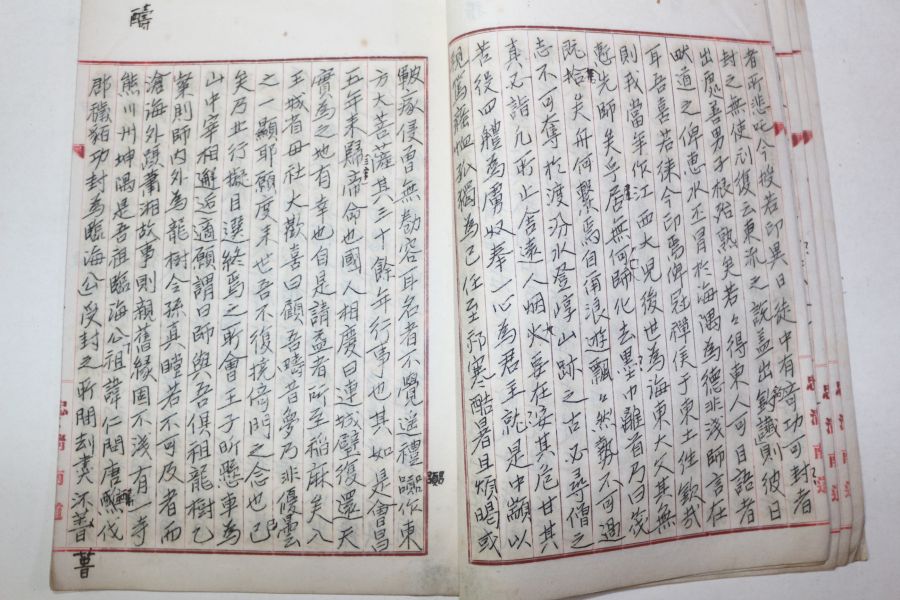 者所悲吒今授若印異日徒中有奇功可封者
封之無使刓復云東流之說盖出鉤讖則彼日
出處善男子根殆熟矣若々得東人可目語者
畎道之俾惠水丕冒於海隅為德非淺師言在
耳吾喜若徠今印焉俾冠禪侯于東土往欽哉
則我當年作江西大兒後世為海東大父其無
慙先師矣乎居無何師化去墨巾離首乃曰茷
既捨矣舟何繫焉自爾浪遊飄々然勢不可遏
志不可奪於渡汾水登崞山跡之古必尋僧之
真必詣凡所止舍遠人烟大要在安其危甘其
苦役四體為虜奴奉一心為君主就是中顓以
視篤癃恤孤獨為己任至祁寒酷暑且煩暍或
皸瘃侵曾無勌容耳名者不覺遙禮嚻作東
方大菩薩其三十餘年行事也其如是會昌
五年來歸帝命也國人相慶曰連城璧復還天
實為之地有幸也自是請益者所至稻麻矣入
王城省母社大歡喜曰顧吾疇昔夢乃非優曇
之一顯耶願度来世吾不復撓倚門之念也已
矣乃北行擬目選終焉之所會王子昕懸車為
山中宰相邂逅適願謂曰師與吾俱祖龍樹乙
粲則師內外為龍樹令孫真瞠若不可及者而
滄海外躡蕭湘故事則親舊緣固不淺有一寺
熊川州坤隅是吾祖臨海公祖諱仁問唐醻伐
郡穢貊功封為臨海公受封之所間刧燼